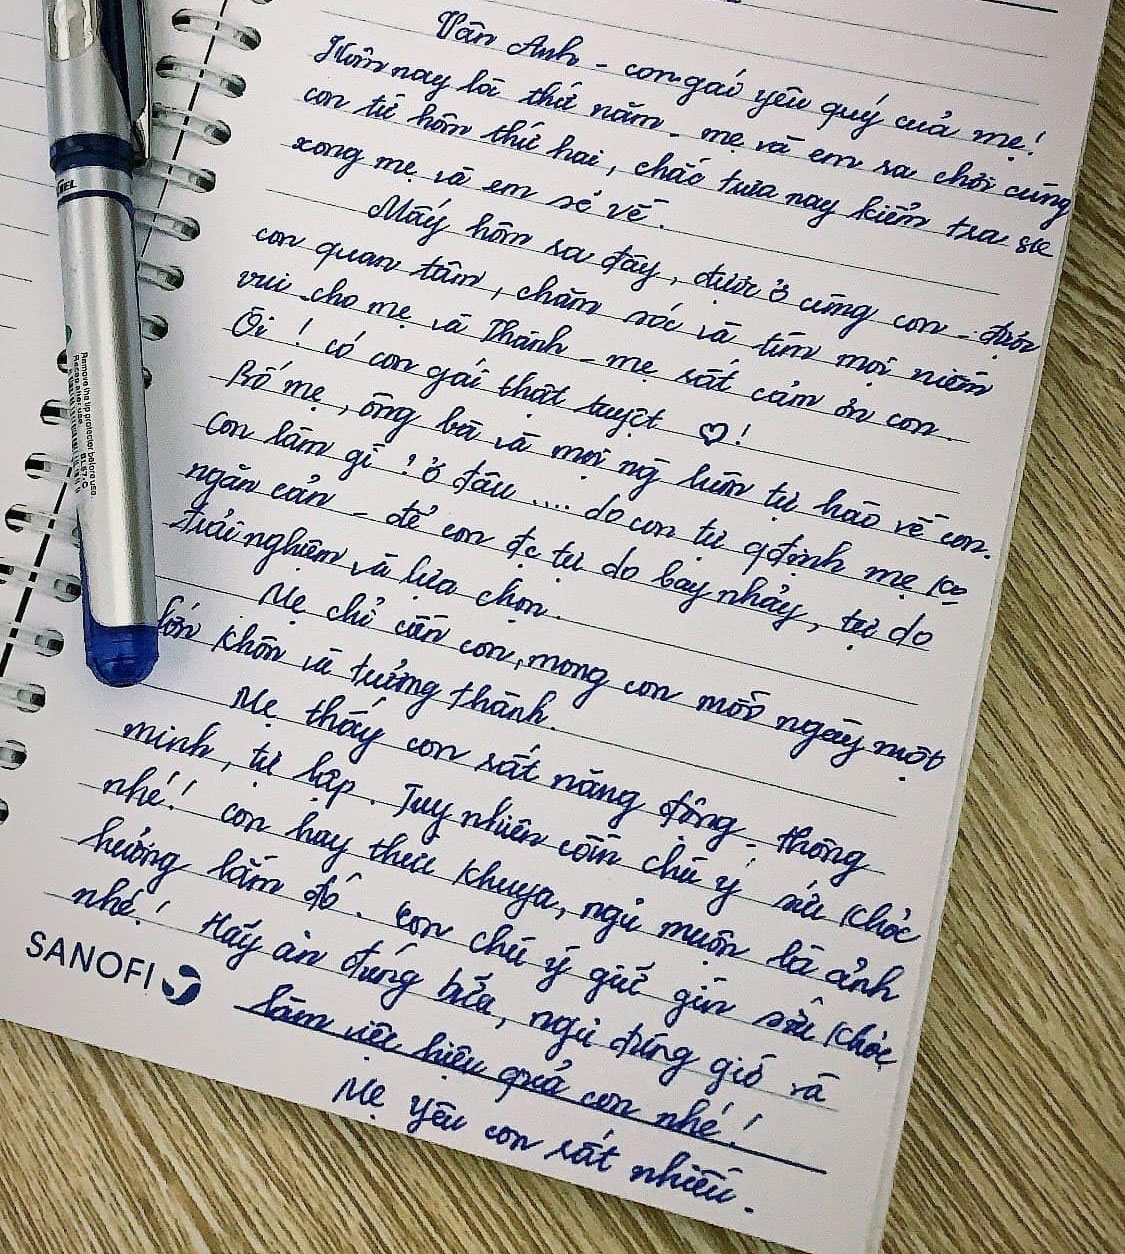 Vân Anh - con gái yêu quý của mẹ!
Hôm nay là thứ năm - mẹ và em ra chơi cùng
con từ hôm thứ hai, chắc trưa nay kiểm tra sk
xong mẹ và em sẽ về.
Mấy hôm ra đây, được ở cùng con - được
con quan tâm, chăm sóc và tìm mọi niềm
vui cho mẹ và Thành - mẹ rất cảm ơn con.
Ôi! có con gái thật tuyệt ♡!
Bố mẹ, ông bà và mọi ng luôn tự hào về con.
Con làm gì? ở đâu ... do con tự qđịnh mẹ ko
ngăn cản - để con đc tự do bay nhảy, tự do
trải nghiệm và lựa chọn.
Mẹ chỉ cần con, mong con mỗi ngày một
lớn khôn và trưởng thành.
Mẹ thấy con rất năng động - thông
minh, tự lập. Tuy nhiên cần chú ý sức khỏe
nhé! con hay thức khuya, ngủ muộn là ảnh
hưởng lắm đó. con chú ý giữ gìn sức khỏe
nhé! Hãy ăn đúng bữa, ngủ đúng giờ và
làm việc hiệu quả con nhé!
Mẹ yêu con rất nhiều.
SANOFI
Remove the tip protector before use.